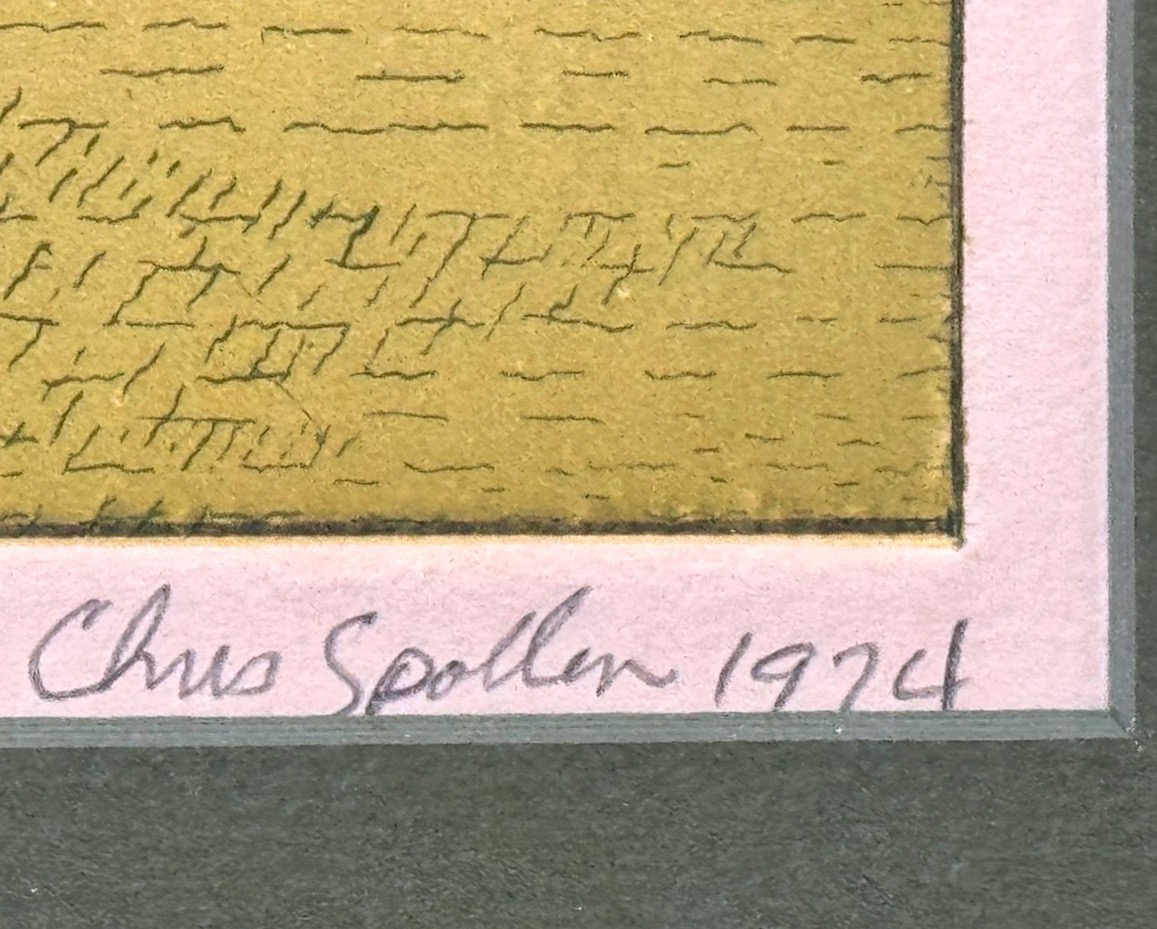 Chris Spollen 1974